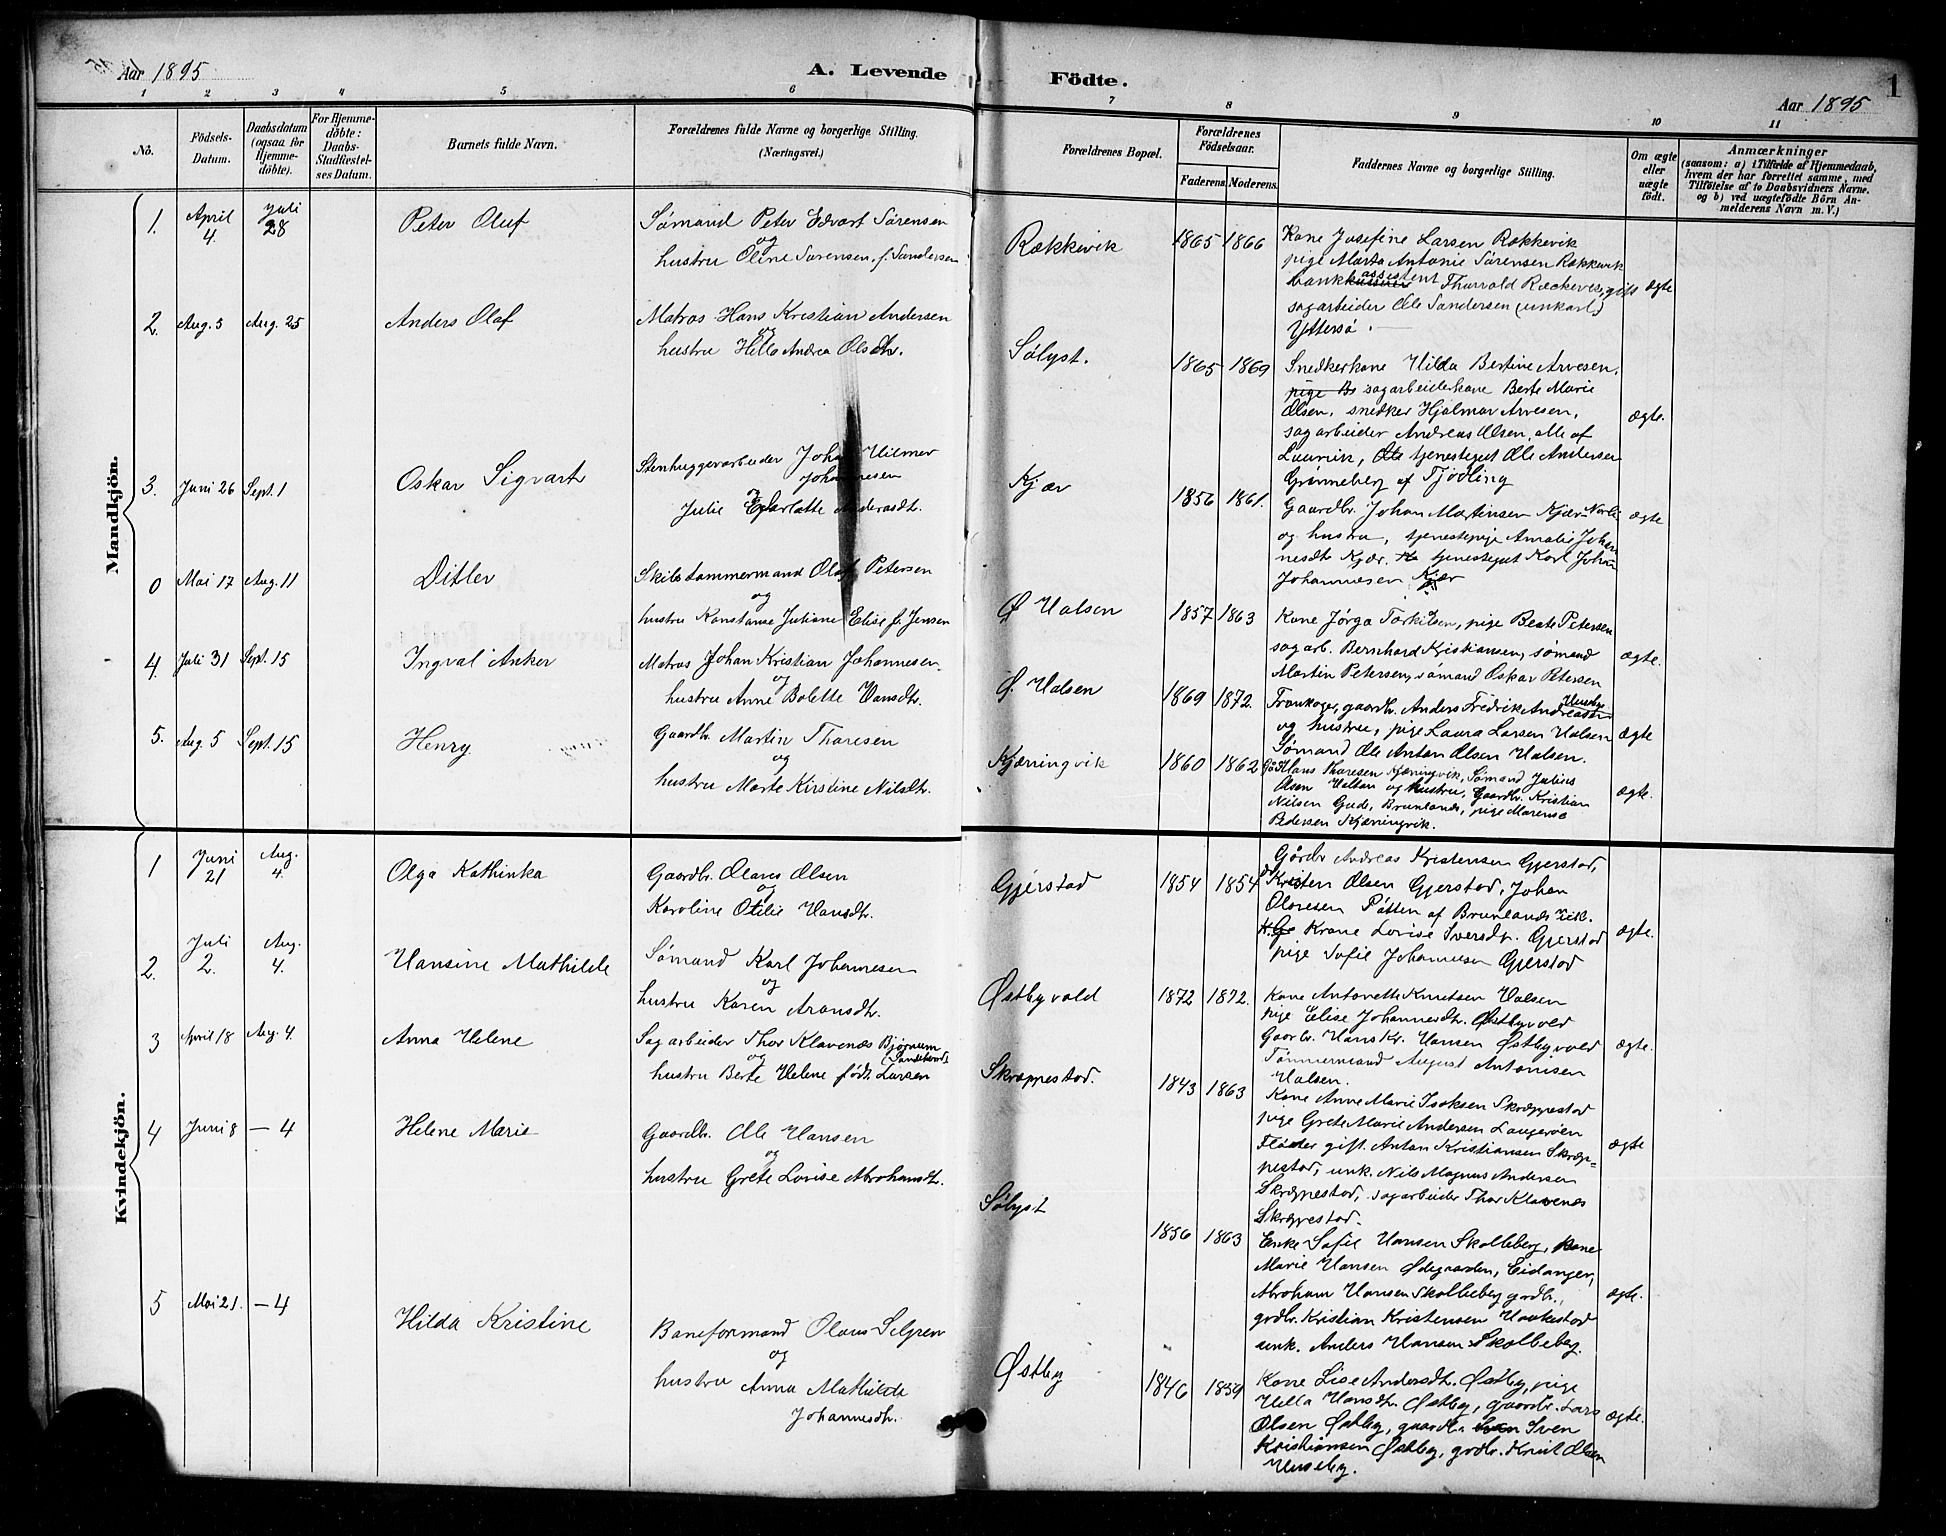 Aar 1895
A. Levende
Födte.
1
Aar 1895
1 2 3 4 5 6 7 8 9 10 11
No.
Födsels-
Datum.
Daabsdatum
(ogsaa for
Hjemme-
döbte).
For Hjemme-
döbte:
Daabs-
Stadfæstel-
ses Datum.
Barnets fulde Navn.
Forældrenes fulde Navne og borgerlige Stilling.
(Næringsvei.)
Forældrenes Bopæl.
Forældrenes
Födselsaar.
Faderens. Moderens.
Faddernes Navne og borgerlige Stilling.
Om ægte
eller
uægte
født.
Anmærkninger
(saasom: a) i Tilfælde af Hjemmedaab,
hvem der har forrettet samme, med
Tilföielse af to Daabsvidners Navne.
og b) ved uægtefödte Börn An-
melderens Navn m. V.)
Mandkjön.
1. April 4. Juli 28 Peter Oluf
Sømand Peter Edvart Sørensen
og
hustru Oline Sørensen f. Sandersen
Rækkevik 1865 1866
Kone Josefine Larsen Rækkevik
pige Marta Antonie Sørensen Rækkevik
bankassistent Thorvald Rækkevig, gift
sagarbeider Ole Sandersen (unkarl)
Yttersø.
ægte
2. Aug. 5 Aug. 25 Anders Olaf
Matros Hans Kristian Andersen
og
hustru Hella Andrea Olsdtr.
Sølyst. 1865 1869
Snedkerkone Hilda Bertine Arvesen,
pige Be sagarbeiderkone Berte Marie
Olsen, snedker Hjalmar Arvesen,
sagarbeider Andreas Olsen, alle af
Laurvik, Ole tjenestegut Ole Andersen
Grønneberg af Tjødling
ægte.
3. Juni 26 Sept. 1 Oskar Sigvart
Stenhuggerarbeider Johan Hilmer
Johannesen
og
Julie Charlotte Andersdt.
Kjær 1856 1861.
Gaardbr. Johan Martinsen Kjær Norli
og hustru, tjenestepige Amalie Johan
nesdt Kjær. tjenestegut Karl Johan
Johannesen Kjær
ægte
0 Mai 17 Aug. 11 Ditlev
Skibstømmermand Olaf Petersen
og
hustru Konstanse Juliane Elise f. Jensen
Ø Halsen 1857 1863
Kone Jørga Torkilsen, pige Beate Petersen
sagarb. Bernhard Kristiansen, sømand
Martin Petersen, sømand Oskar Petersen
ægte.
4. Juli 31 Sept. 15 Ingval Anker
Matros Johan Kristian Johannesen
og
hustru Anne Bolette Hansdtr.
Ø. Halsen 1869 1872.
Trankoger, gaardb. Anders Fredrik Andreasen
og hustru, pige Laura Larsen Halsen
Sømand Ole Anton Olsen Halsen.
ægte
5. Aug. 5 Sept. 15 Henry
Gaardbr. Martin Thoresen
og
hustru Marte Kirstine Nilsdtr.
Kjærringvik 1860 1862
Klaus Thoresen Kjærringvik, Sømand Julius
Olsen Halsen og hustru, Gaardbr. Kristian
Nilsen Gude, Brunlanes, pige Marense
Pedersen Kjærringvik.
ægte.
Kvindekjön.
1 Juni 21 Aug. 4. Olga Kathinka
Gaardbr. Olaves Olsen
og
Karoline Otilie Hansdtr.
Gjerstad 1854 1854
Gårdbr Andreas Kristensen Gjerstad,
Kristen Olsen Gjerstad, Johan
Olavesen Påtten af Brunlanes
Krone Lovise Iversdtr. Gjerstad
pige Sofie Johannesen Gjerstad
ægte.
2. Juli 2. Aug. 4. Hansine Mathilde
Sømand Karl Johannesen
og
hustru Karen Aronsdtr.
Østbyvold 1872 1872.
Kone Antonette Knutsen Halsen
pige Elise Johannesdtr. Østbyvold
Gaarbr. Hans Kr. Hansen Østbyvold
Tømmermand August Antonisen
Halsen.
ægte.
3 April 18 Aug. 4. Anna Helene
Sagarbeider Thor Klavenæs Bjørnum
og (Sandeherred)
hustru Berte Helene født Larsen
Skræppestad. 1843 1863
Kone Anne Marie Isaksen Skræppestad
pige Grete Marie Andersen Langerøen
Fløder gift. Anton Kristiansen Skræp-
pestad, unk. Nils Magnus Andersen
Skræppestad, sagarbeider Thor Klavenæs
Skræppestad.
ægte
4 Juni 8 — 4 Helene Marie
Gaardbr. Ole Hansen
og
hustru Grete Lovise Abrahamdtr.
Sølyst 1856 1863
Enke Sofie Hansen Skolleberg, Kone
Marie Hansen Ødegaarden, Eidanger,
Abraham Hansen Skolleberg grdbr.,
grdbr. Kristian Kristensen Haakestad
unk. Anders Hansen Skolleberg.
ægte.
5 Mai 21. — 4 Hilda Kristine
Baneformand Olaus Selgren
og
hustru Anna Mathilde
Johannesdtr.
Østby 1846 1859
Kone Lise Andersdtr. Østby, pige
Hella Hansdtr. Østby, gaardbr. Lars
Olsen Østby, gaardbr. Sven
Kristiansen Østby, grdbr. Knut Olsen
Huseby.
ægte.